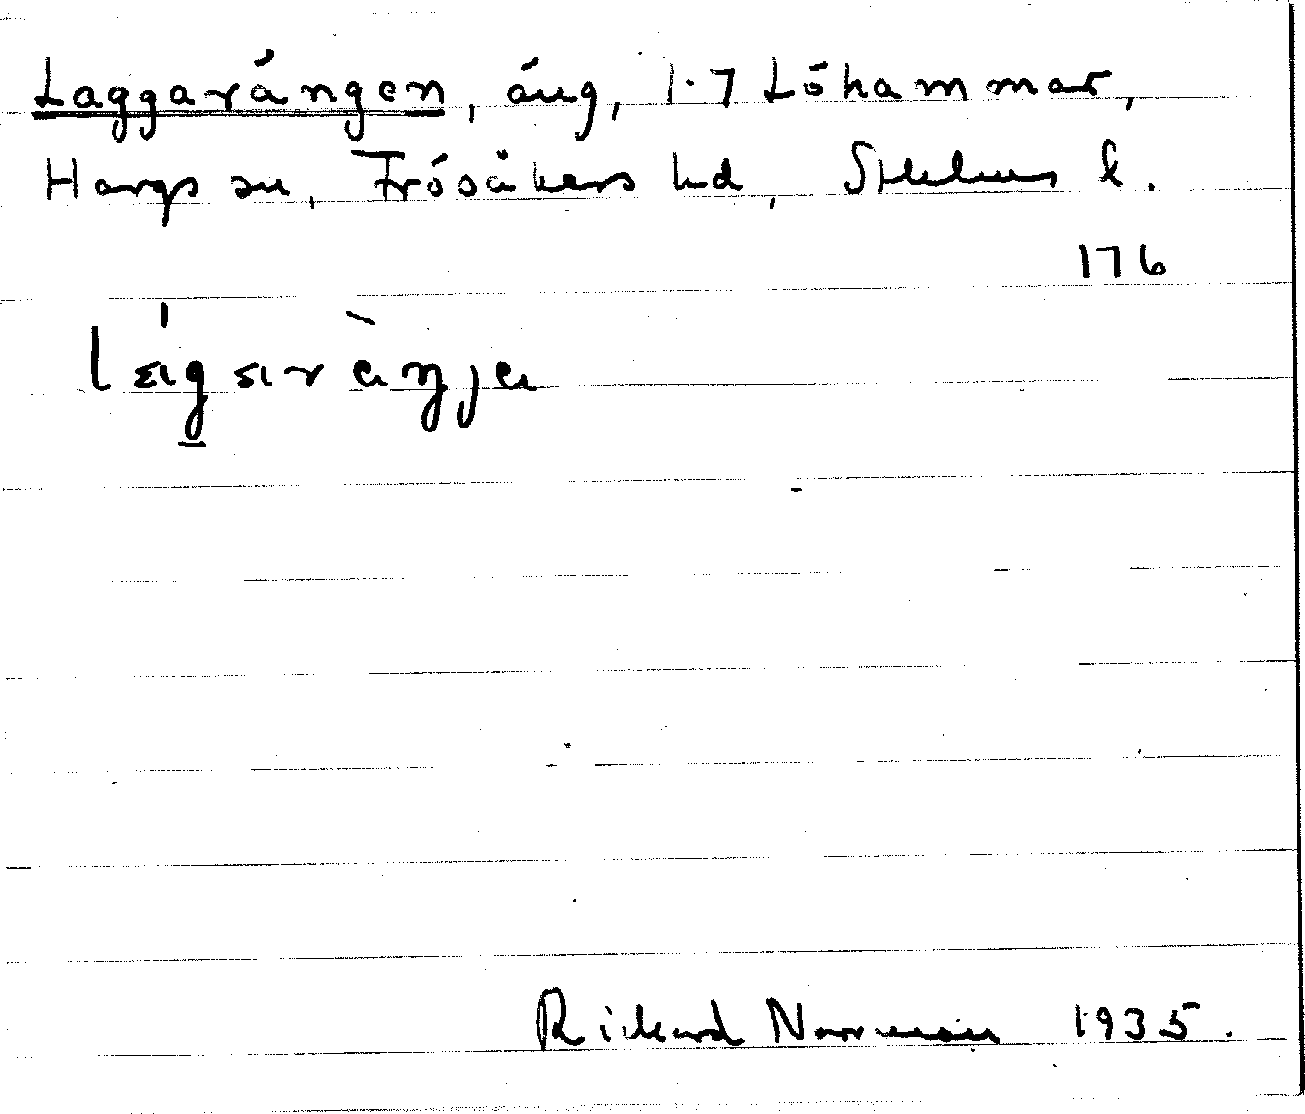 Laggarängen, äng, 1.7 Löhammar,
Hargs sn, Frösåkers hd, Sthlms l.
176
Rickard Norrman 1935.